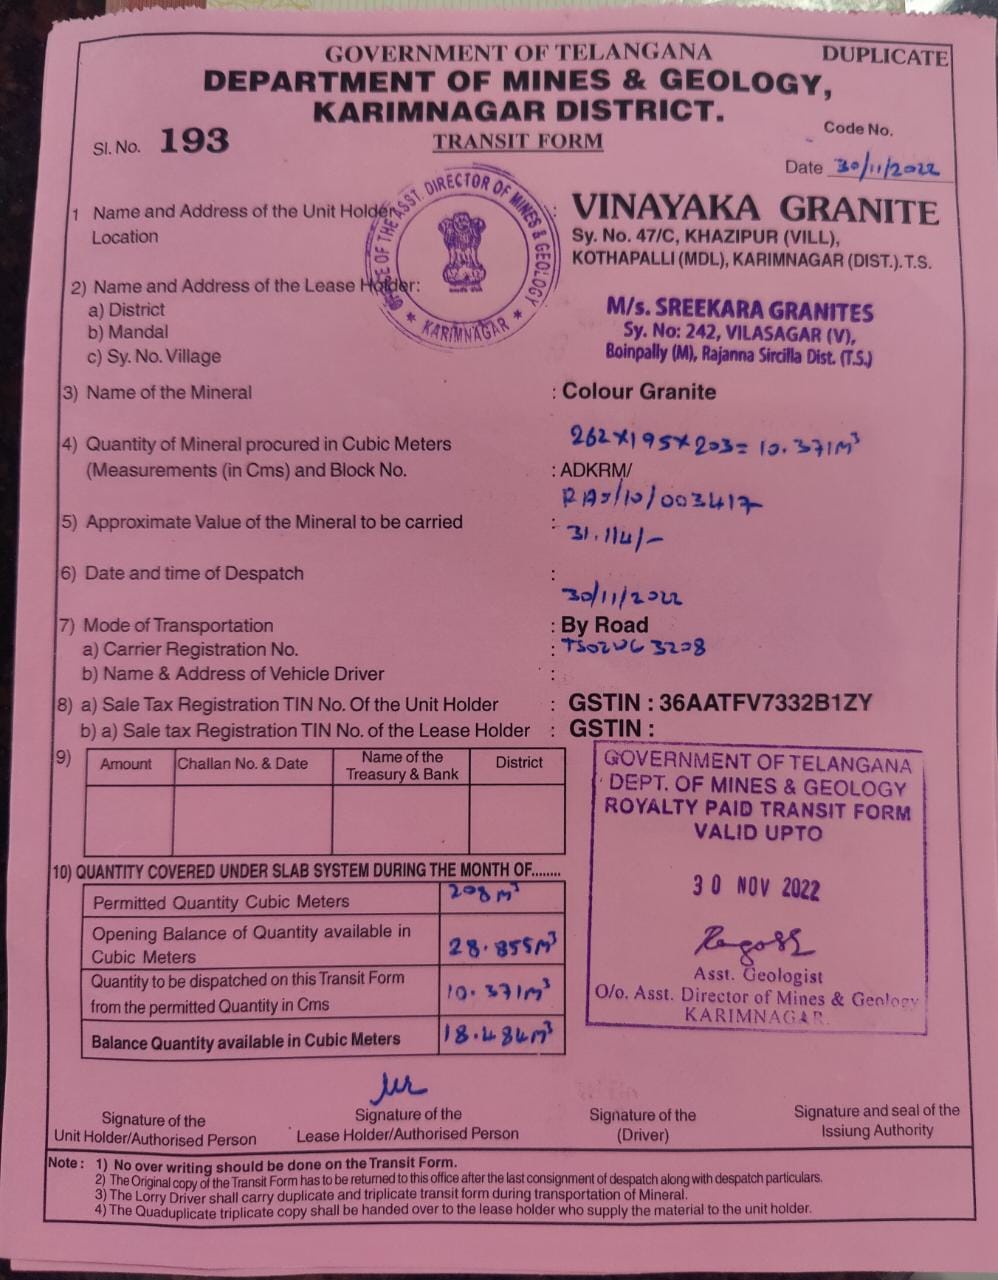 GOVERNMENT OF TELANGANA DUPLICATE
DEPARTMENT OF MINES & GEOLOGY,
KARIMNAGAR DISTRICT.
Sl. No. 193 TRANSIT FORM Code No.
Date 30/11/2022
1 Name and Address of the Unit Holder : VINAYAKA GRANITE
Location Sy. No. 47/C, KHAZIPUR (VILL),
KOTHAPALLI (MDL), KARIMNAGAR (DIST.).T.S.
OFFICE OF THE ASST. DIRECTOR OF MINES & GEOLOGY
* KARIMNAGAR *
2) Name and Address of the Lease Holder:
a) District M/s. SREEKARA GRANITES
b) Mandal Sy. No: 242, VILASAGAR (V),
c) Sy. No. Village Boinpally (M), Rajanna Sircilla Dist. (T.S.)
3) Name of the Mineral : Colour Granite
4) Quantity of Mineral procured in Cubic Meters 262×195×203= 10.371M³
(Measurements (in Cms) and Block No. : ADKRM/
RAJ/10/003417
5) Approximate Value of the Mineral to be carried : 31.114/-
6) Date and time of Despatch :
30/11/2022
7) Mode of Transportation : By Road
a) Carrier Registration No. : TS02UC 3208
b) Name & Address of Vehicle Driver :
8) a) Sale Tax Registration TIN No. Of the Unit Holder : GSTIN : 36AATFV7332B1ZY
b) a) Sale tax Registration TIN No. of the Lease Holder : GSTIN :
9) Amount Challan No. & Date Name of the Treasury & Bank District
GOVERNMENT OF TELANGANA
DEPT. OF MINES & GEOLOGY
ROYALTY PAID TRANSIT FORM
VALID UPTO
30 NOV 2022
Asst. Geologist
O/o. Asst. Director of Mines & Geology
KARIMNAGAR.
10) QUANTITY COVERED UNDER SLAB SYSTEM DURING THE MONTH OF........
Permitted Quantity Cubic Meters 208 M³
Opening Balance of Quantity available in
Cubic Meters 28.855M³
Quantity to be dispatched on this Transit Form
from the permitted Quantity in Cms 10.371M³
Balance Quantity available in Cubic Meters 18.484M³
Signature of the
Unit Holder/Authorised Person
Signature of the
Lease Holder/Authorised Person
Signature of the
(Driver)
Signature and seal of the
Issiung Authority
Note : 1) No over writing should be done on the Transit Form.
2) The Original copy of the Transit Form has to be returned to this office after the last consignment of despatch along with despatch particulars.
3) The Lorry Driver shall carry duplicate and triplicate transit form during transportation of Mineral.
4) The Quaduplicate triplicate copy shall be handed over to the lease holder who supply the material to the unit holder.